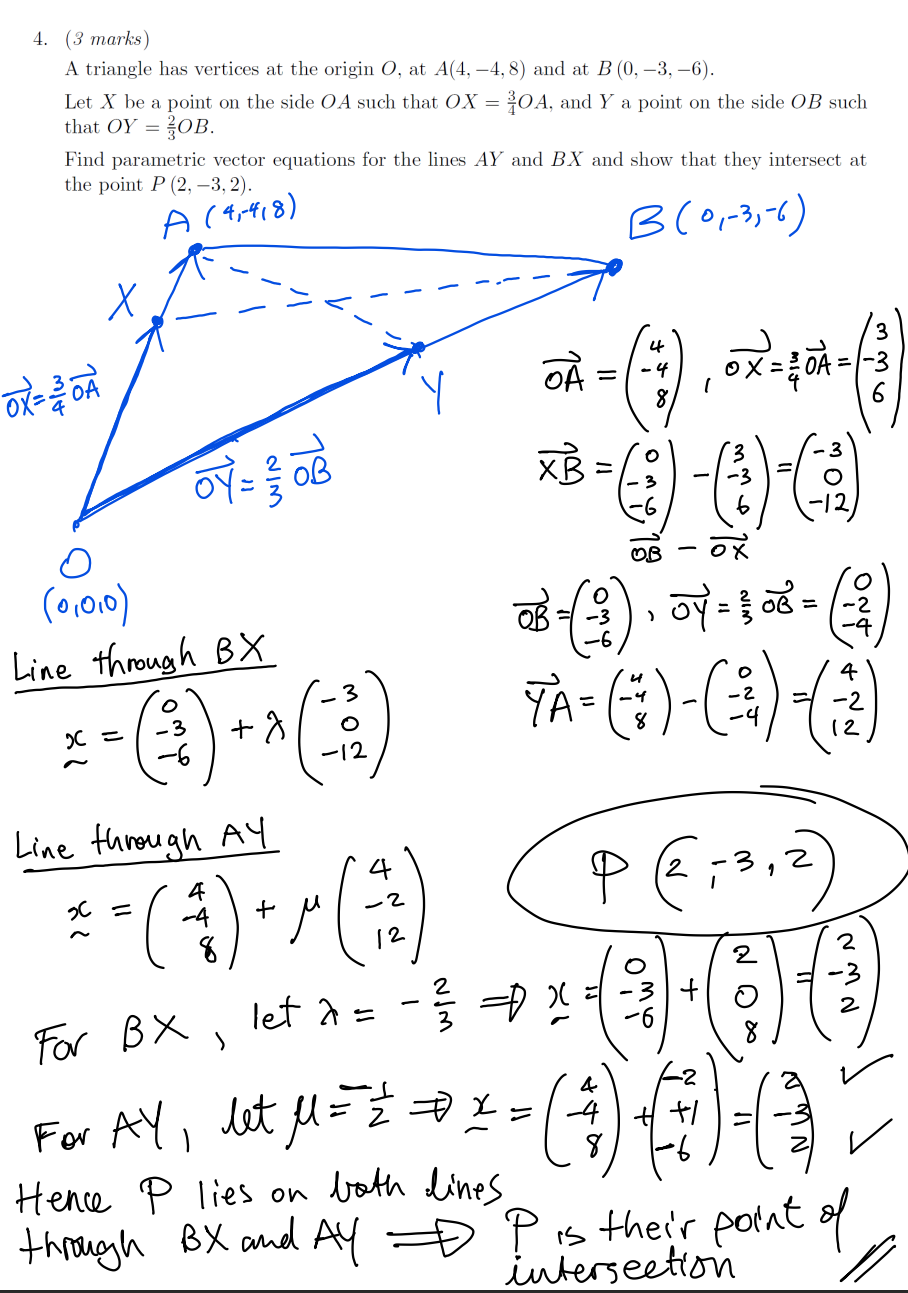 4. (3 marks)
A triangle has vertices at the origin O, at A(4, −4, 8) and at B (0, −3, −6).
Let X be a point on the side OA such that OX = 3/4 OA, and Y a point on the side OB such
that OY = 2/3 OB.
Find parametric vector equations for the lines AY and BX and show that they intersect at
the point P (2, −3, 2).
A (4,-4,8)
B (0,-3,-6)
X
Y
→OX = 3/4 →OA
→OY = 2/3 →OB
O
(0,0,0)
→OA = (4 -4 8) , →OX = 3/4 →OA = (3 -3 6)
→XB = (0 -3 -6) - (3 -3 6) = (-3 0 -12)
→OB - →OX
→OB = (0 -3 -6) , →OY = 2/3 →OB = (0 -2 -4)
→YA = (4 -4 8) - (0 -2 -4) = (4 -2 12)
Line through BX
x = (0 -3 -6) + λ (-3 0 -12)
Line through AY
x = (4 -4 8) + μ (4 -2 12)
P (2, -3, 2)
For BX, let λ = -2/3 ⇒ x = (0 -3 -6) + (2 0 8) = (2 -3 2) ✓
For AY, let μ = -1/2 ⇒ x = (4 -4 8) + (-2 +1 -6) = (2 -3 2) ✓
Hence P lies on both lines
through BX and AY ⇒ P is their point of
intersection